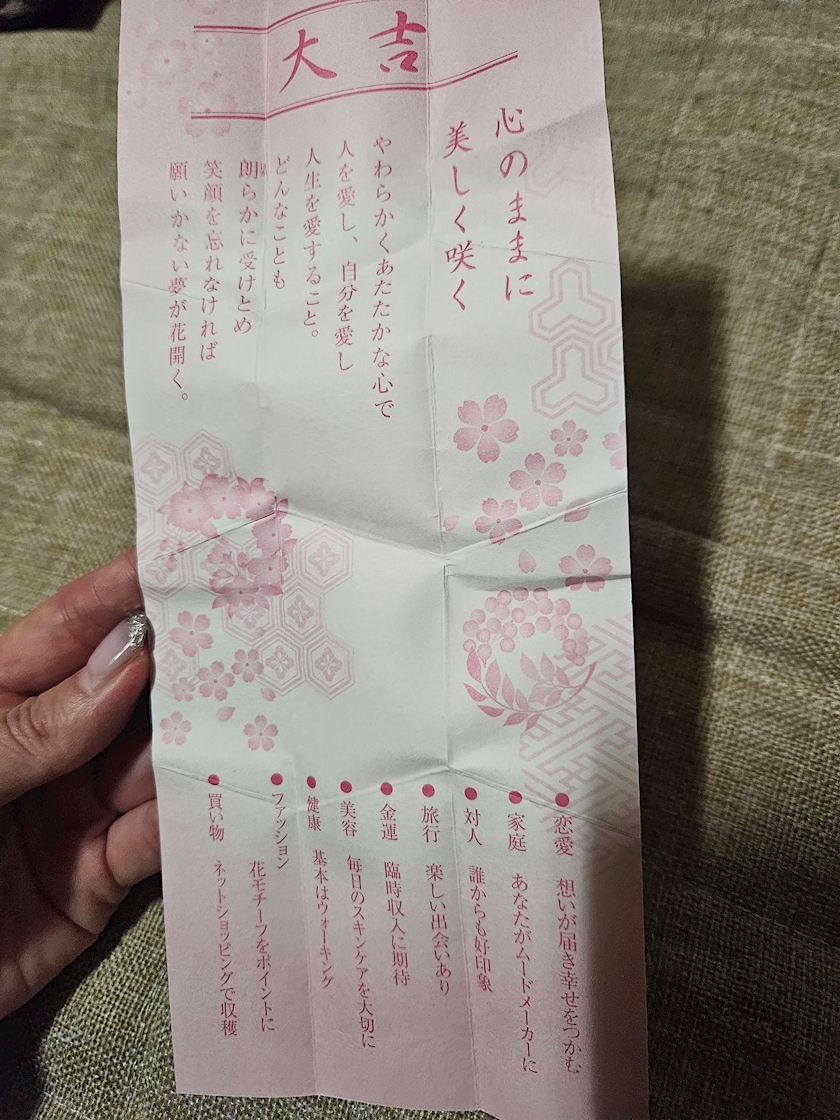 大吉
心のままに
美しく咲く
やわらかくあたたかな心で
人を愛し、自分を愛し
人生を愛すること。
どんなことも
朗らかに受けとめ
笑顔を忘れなければ
願いかない夢が花開く。
●恋愛 想いが届き幸せをつかむ
●家庭 あなたがムードメーカーに
●対人 誰からも好印象
●旅行 楽しい出会いあり
●金運 臨時収入に期待
●美容 毎日のスキンケアを大切に
●健康 基本はウォーキング
●ファッション
花モチーフをポイントに
●買い物 ネットショッピングで収穫